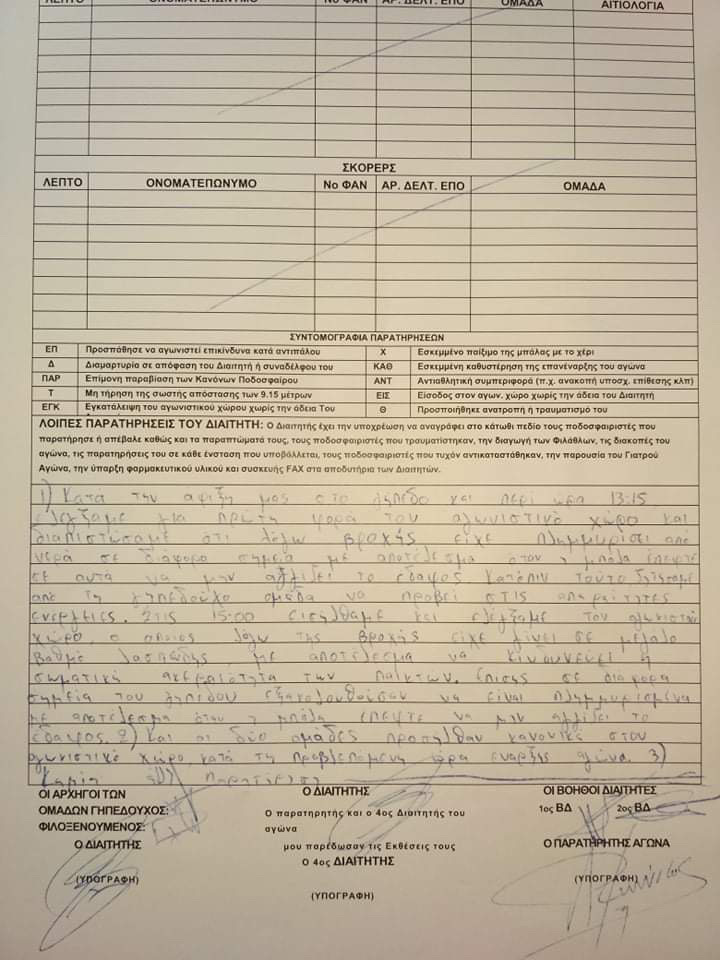 ΛΕΠΤΟ ΟΝΟΜΑΤΕΠΩΝΥΜΟ Νο ΦΑΝ ΑΡ. ΔΕΛΤ. ΕΠΟ ΟΜΑΔΑ ΑΙΤΙΟΛΟΓΙΑ
ΣΚΟΡΕΡΣ
ΛΕΠΤΟ ΟΝΟΜΑΤΕΠΩΝΥΜΟ Νο ΦΑΝ ΑΡ. ΔΕΛΤ. ΕΠΟ ΟΜΑΔΑ
ΣΥΝΤΟΜΟΓΡΑΦΙΑ ΠΑΡΑΤΗΡΗΣΕΩΝ
ΕΠ Προσπάθησε να αγωνιστεί επικίνδυνα κατά αντιπάλου Χ Εσκεμμένο παίξιμο της μπάλας με το χέρι
Δ Διαμαρτυρία σε απόφαση του Διαιτητή ή συναδέλφου του ΚΑΘ Εσκεμμένη καθυστέρηση της επανέναρξης του αγώνα
ΠΑΡ Επίμονη παραβίαση των Κανόνων Ποδοσφαίρου ΑΝΤ Αντιαθλητική συμπεριφορά (π.χ. ανακοπή υποσχ. επίθεσης κλπ)
Τ Μη τήρηση της σωστής απόστασης των 9.15 μέτρων ΕΙΣ Είσοδος στον αγων. χώρο χωρίς την άδεια του Διαιτητή
ΕΓΚ Εγκατάλειψη του αγωνιστικού χώρου χωρίς την άδεια Του Θ Προσποιήθηκε ανατροπή ή τραυματισμό του
ΛΟΙΠΕΣ ΠΑΡΑΤΗΡΗΣΕΙΣ ΤΟΥ ΔΙΑΙΤΗΤΗ: Ο Διαιτητής έχει την υποχρέωση να αναγράφει στο κάτωθι πεδίο τους ποδοσφαιριστές που
παρατήρησε ή απέβαλε καθώς και τα παραπτώματά τους, τους ποδοσφαιριστές που τραυματίστηκαν, την διαγωγή των Φιλάθλων, τις διακοπές του
αγώνα, τις παρατηρήσεις του σε κάθε ένσταση που υποβάλλεται, τους ποδοσφαιριστές που τυχόν αντικαταστάθηκαν, την παρουσία του Γιατρού
Αγώνα, την ύπαρξη φαρμακευτικού υλικού και συσκευής FAX στα αποδυτήρια των Διαιτητών.
1) Κατά την άφιξη μας στο γήπεδο και περί ώρα 13:15
ελέγξαμε για πρώτη φορά τον αγωνιστικό χώρο και
διαπιστώσαμε ότι λόγω βροχής είχε πλημμυρίσει από
νερά σε διάφορα σημεία με αποτέλεσμα όταν η μπάλα έπεφτε
σε αυτά να μην αγγίζει το έδαφος. Κατόπιν τούτο ζητήσαμε
από τη γηπεδούχο ομάδα να προβεί στις απαραίτητες
ενέργειες. Στις 15:00 εισήλθαμε και ελέγξαμε τον αγωνιστικό
χώρο, ο οποίος λόγω της βροχής είχε γίνει σε μεγάλο
βαθμό λασπώδης, με αποτέλεσμα να κινδυνεύει η
σωματική ακεραιότητα των παικτών. Επίσης σε διάφορα
σημεία του γηπέδου εξακολουθούσαν να είναι πλημμυρισμένα
με αποτέλεσμα όταν η μπάλα έπεφτε να μην αγγίζει το
έδαφος. 2) Και οι δύο ομάδες προσήλθαν κανονικά στον
αγωνιστικό χώρο κατά τη προβλεπόμενη ώρα έναρξης αγώνα. 3)
Καμία παρατήρηση
ΟΙ ΑΡΧΗΓΟΙ ΤΩΝ Ο ΔΙΑΙΤΗΤΗΣ ΟΙ ΒΟΗΘΟΙ ΔΙΑΙΤΗΤΕΣ
ΟΜΑΔΩΝ ΓΗΠΕΔΟΥΧΟΣ: Ο παρατηρητής και ο 4ος Διαιτητής του 1ος ΒΔ 2ος ΒΔ
ΦΙΛΟΞΕΝΟΥΜΕΝΟΣ: αγώνα
Ο ΔΙΑΙΤΗΤΗΣ μου παρέδωσαν τις Εκθέσεις τους Ο ΠΑΡΑΤΗΡΗΤΗΣ ΑΓΩΝΑ
Ο 4ος ΔΙΑΙΤΗΤΗΣ
(ΥΠΟΓΡΑΦΗ) (ΥΠΟΓΡΑΦΗ) (ΥΠΟΓΡΑΦΗ)